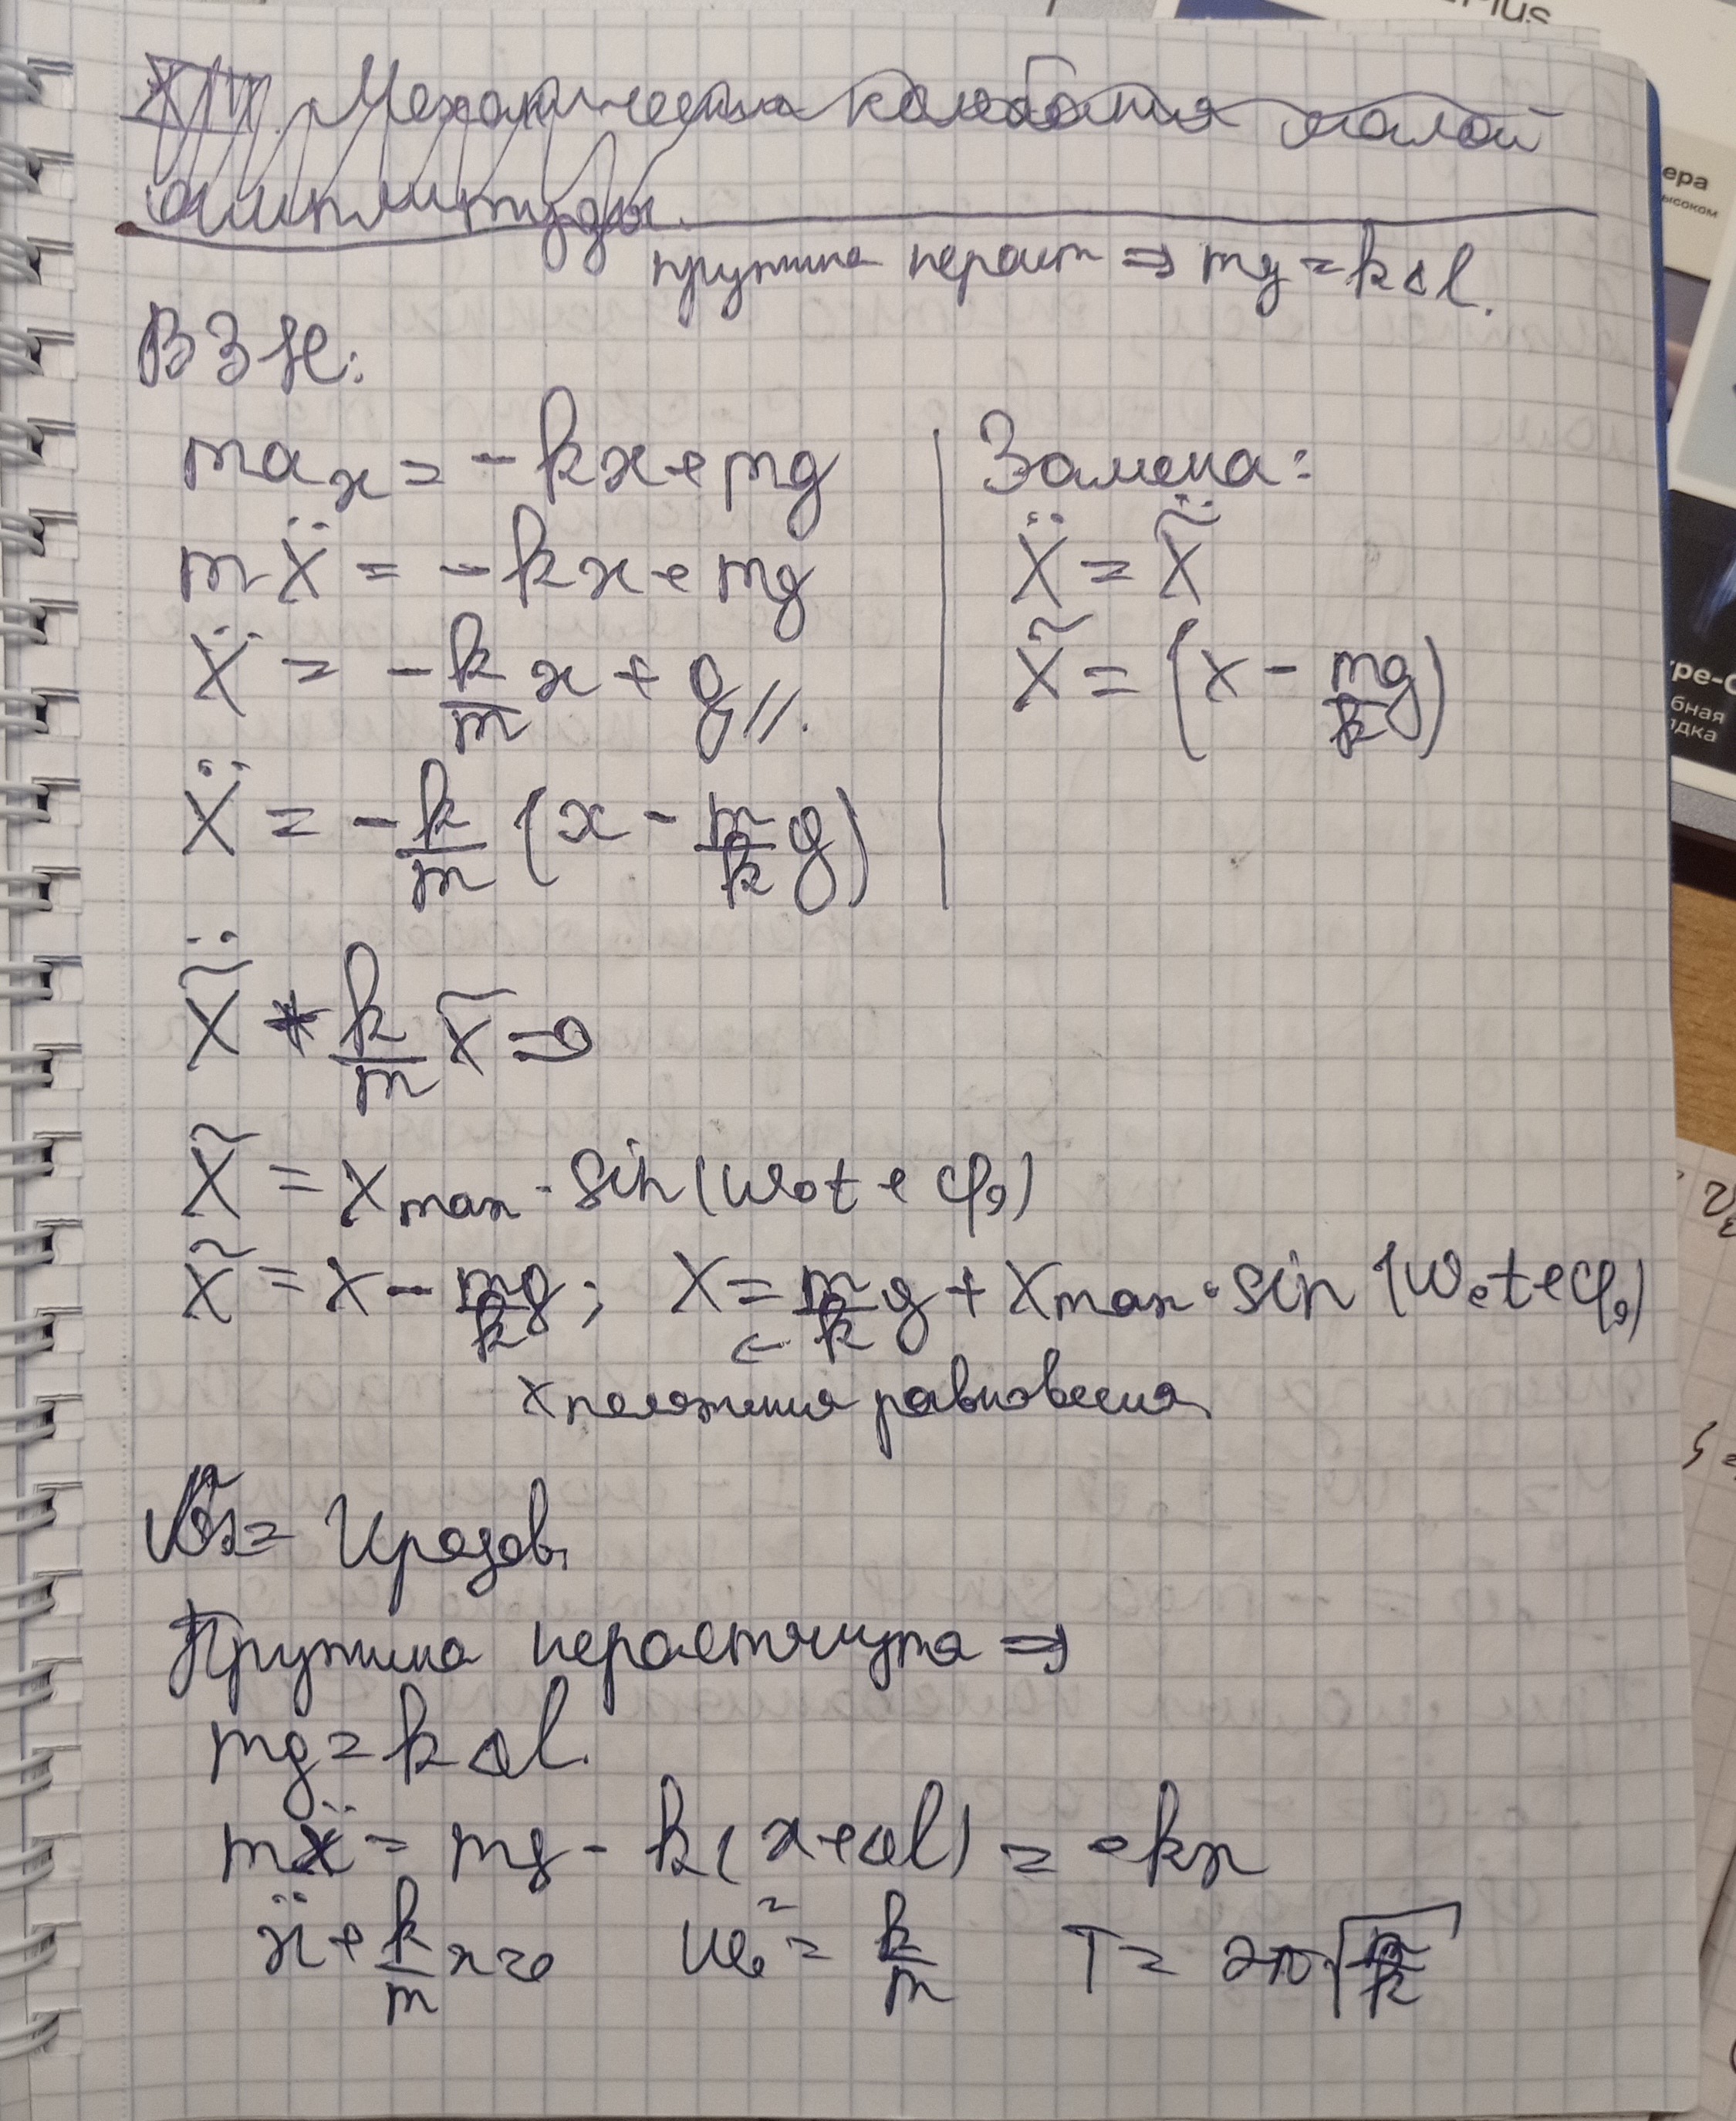 XIV. Механические колебания малой
амплитуды.
пружина нераст ⇒ mg = kΔl.
ВЗН:
maₓ = -kx + mg
mẍ = -kx + mg
ẍ = -k/m x + g //.
ẍ = -k/m (x - m/k g)
Замена:
ẍ = x̃̈
x̃ = (x - mg/k)
x̃̈ + k/m x̃ = 0
x̃ = xmax · sin(ω₀t + φ₀)
x̃ = x - mg/k; x = m/k g + xmax · sin(ω₀t + φ₀)
←
x положения равновесия
Иродов.
Пружина нерастянута ⇒
mg = kΔl.
mẍ = mg - k(x + Δl) = -kx
ẍ + k/m x = 0 ω₀² = k/m T = 2π√(m/k)
ера
ысоком
pe-C
бная
ядка